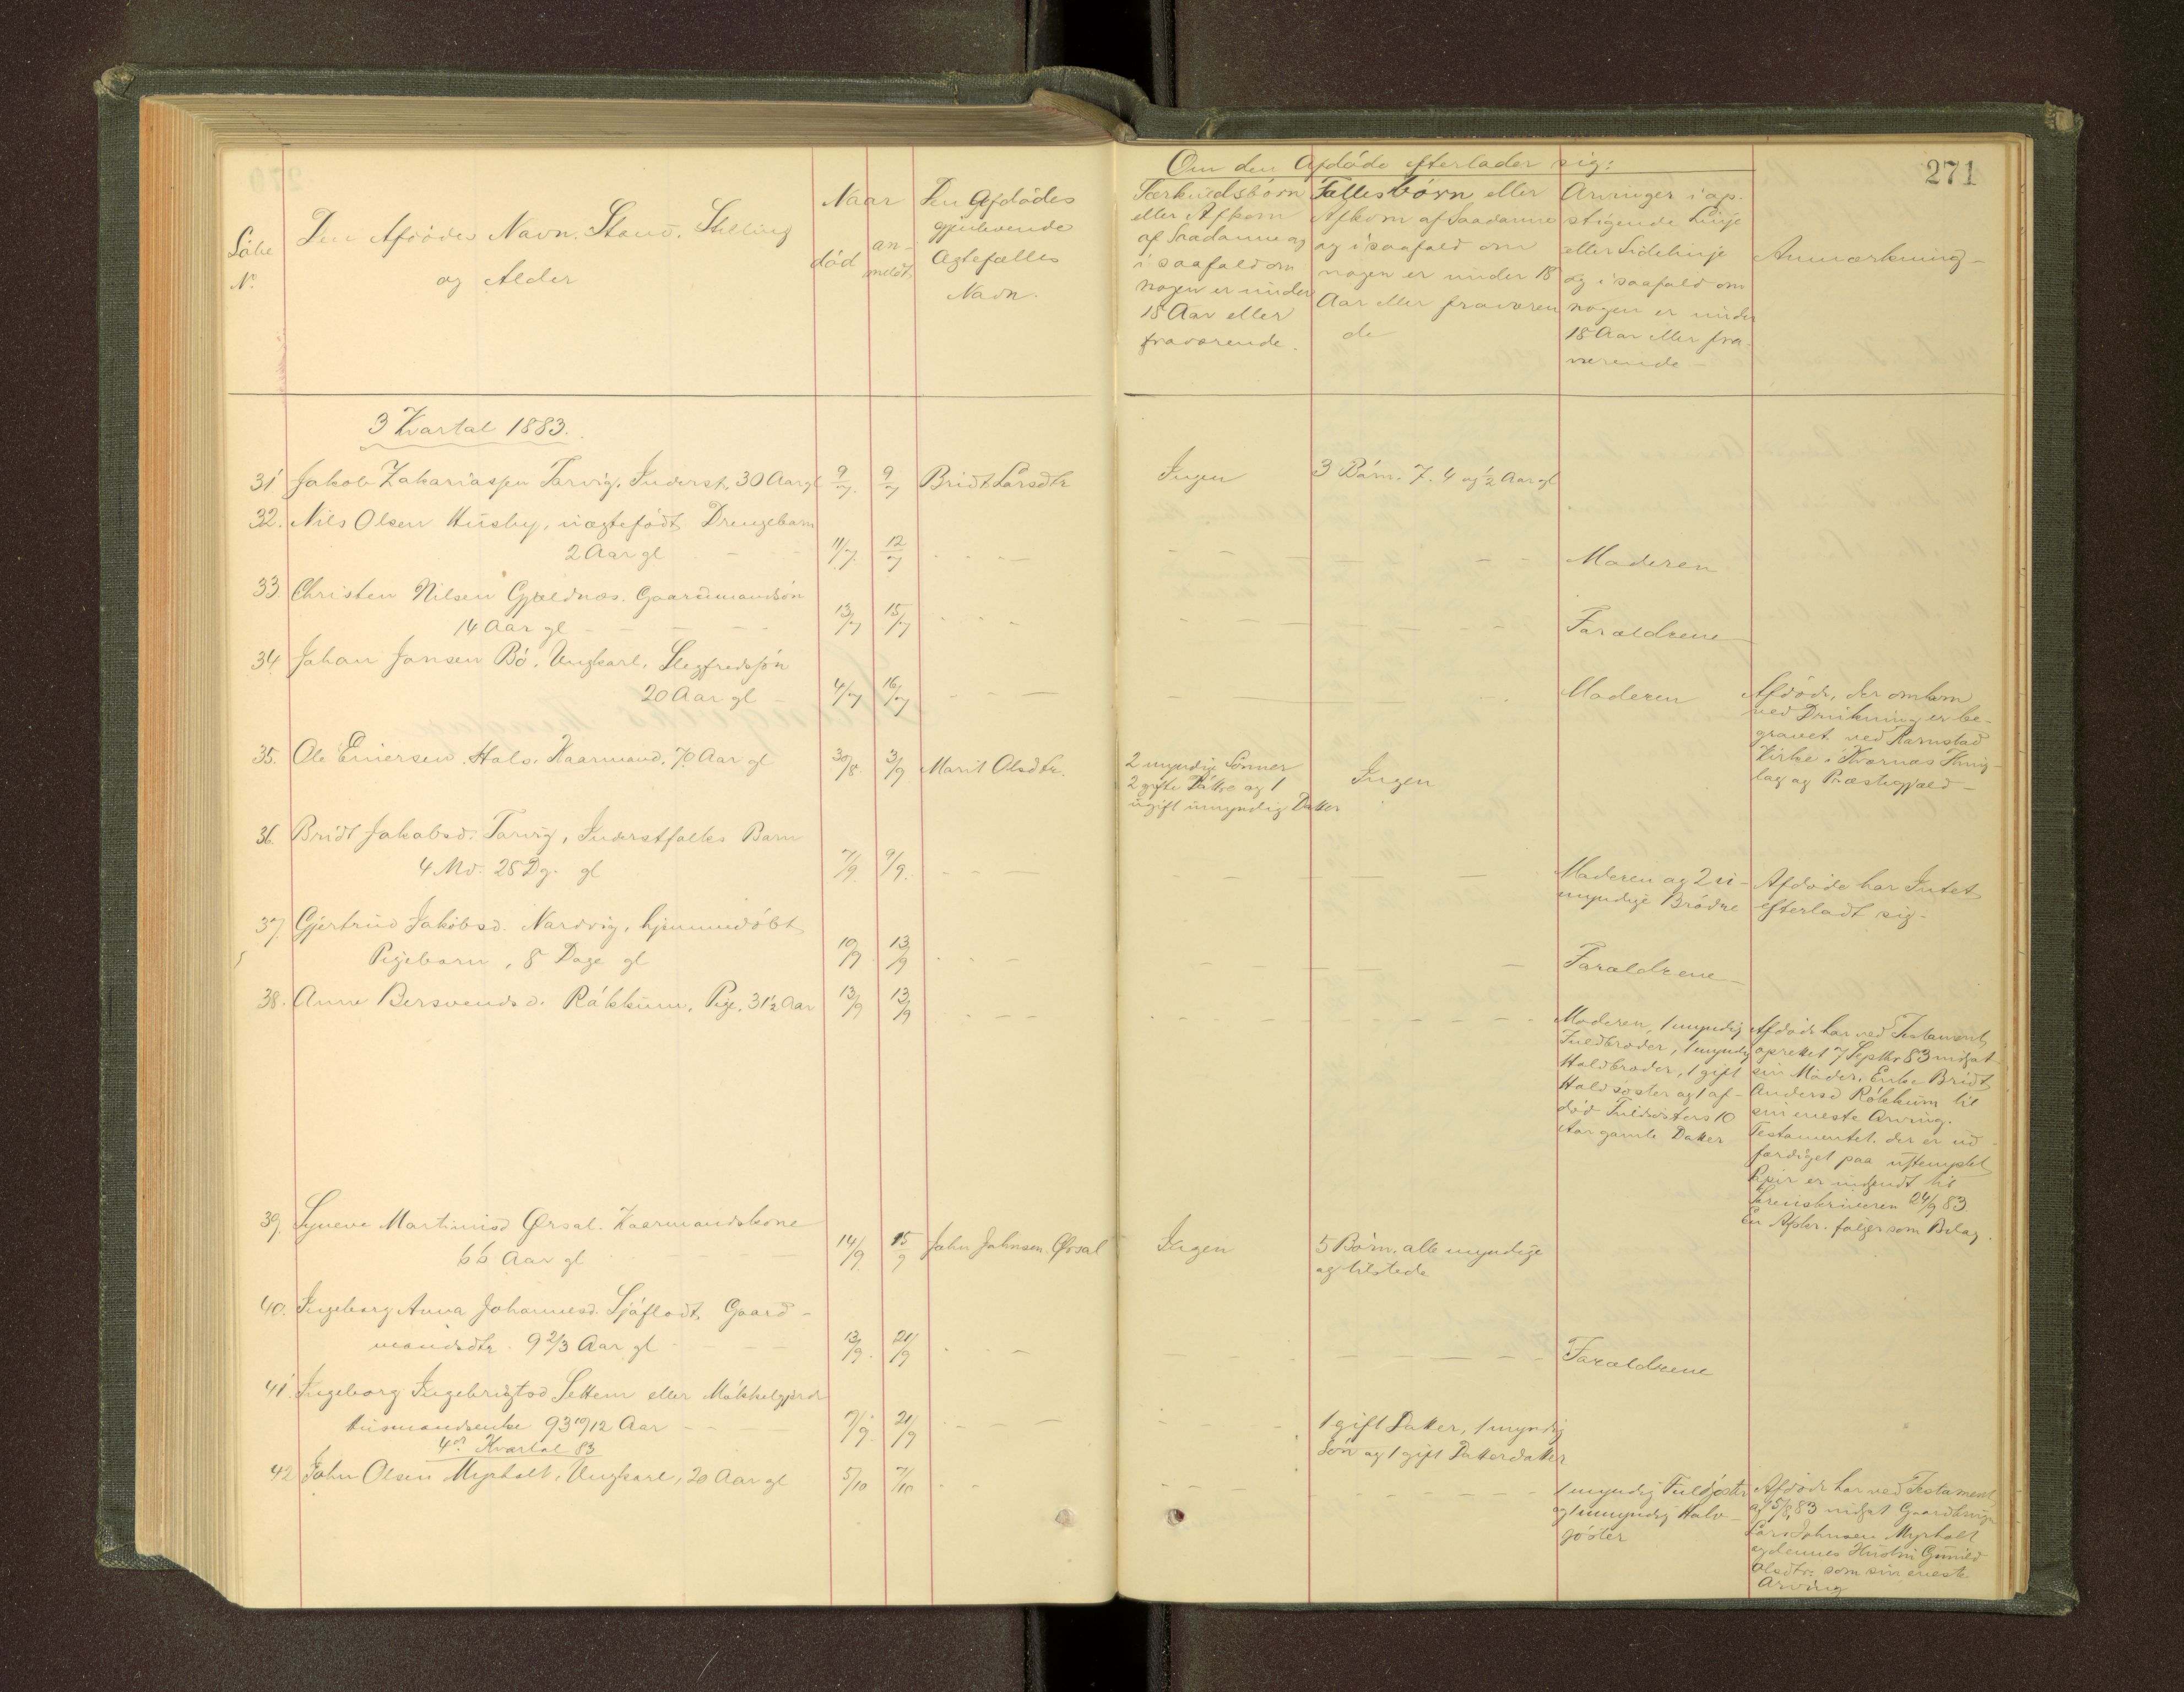 271
Löbe
No
Den Afdödes Navn. Stand. Stilling
og Alder
Naar
död
an-
meldt.
Den Afdödes
gjenlevende
Ægtefælles
Navn.
Om den Afdöde efterlader sig:
Særkuldsbörn
eller Afkom
af Saadanne og
i saafald om
nogen er under
18 Aar eller
fraværende.
Fællesbörn eller
Afkom af Saadanne
og i saafald om
nogen er under 18
Aar eller fraværen
de
Arvinger i op-
stigende Linje
eller Sidelinje
og i saafald om
nogen er under
18 Aar eller fra-
værende
Anmærkning
3 Kvartal 1883.
31 Jakob Zakariassen Torvig. Inderst, 30 Aar gl 9/7. 9/7 Bridt Larsdtr Ingen 3 Börn. 7. 4 og ½ Aar gl
32. Nils Olsen Husby, uægtefödt Drengebarn
2 Aar gl 11/7. 12/7 Moderen
33. Christen Nilsen Gjældnæs. Gaardmandsön
14 Aar gl 13/7 15/7 Forældrene
34. Johan Jonsen Bö. Ungkarl. Slegfredsön
20 Aar gl 4/7 16/7 Moderen
Afdöde, der omkom
ved Drukning er be-
gravet ved Kornstad
Kirke i Kvernæs Thing-
lag og Præstegjæld
35. Ole Einersen Hals. Kaarmand. 70 Aar gl 30/8. 3/9 Marit Olsdtr.
2 myndige Sönner
2 gifte Döttre og 1
ugift umyndig Datter
Ingen
36. Bridt Jakobsd. Torvig, Inderstfolks Barn
4 Md. 25 Dg. gl 7/9 9/9.
Moderen og 2 u-
myndige Brödre
Afdöde har Intet
efterladt sig.
37. Gjertrud Jakobsd. Nordvig, hjemmedöbt
Pigebarn, 8 Dage gl 10/9 13/9 Forældrene
38. Anne Bersvendsd. Rökkum, Pige, 31½ Aar 13/9 13/9
Moderen, 1 myndig
Fuldbroder, 1 myndig
Halvbroder, 1 gift
Halvsöster og 1 af-
död Fuldsösters 10
Aar gamle Datter
Afdöde har ved Testament
oprettet 7 Septbr 83 indsat
sin Moder, Enke Bridt
Andersd Rökkum til
sin eneste Arving.
Testamentet, der er ud-
færdiget paa ustemplet
Papir er indsendt til
Sorenskriveren 24/9 83.
En Afskr. fölger som Bilag.
39. Synneve Martinusd Ørsal. Kaarmandskone
66 Aar gl 14/9. 15/9 John Johnsen Ørsal Ingen
5 Börn. alle myndige
og tilstede
40. Ingeborg Anna Johannesd. Sjöflodt, Gaard-
mandsdtr. 9 2/3 Aar gl 13/9. 21/9 Forældrene
41. Ingeborg Ingebrigtsd Settem eller Mökkelgjerde
Husmandsenke 93 10/12 Aar 7/9. 21/9
1 gift Datter, 1 myndig
Sön og 1 gift Datterdatter
4de Kvartal 83
42 John Olsen Myrholt, Ungkarl, 20 Aar gl 5/10 7/10
1 myndig Fuldsöster
og 1 umyndig Halv-
söster
Afdöde har ved Testament
af 5/8 83 indsat Gaardbruger
Lars Johnsen Myrholt
og dennes Hustru Gunild
Olsdtr. som sin eneste
Arving